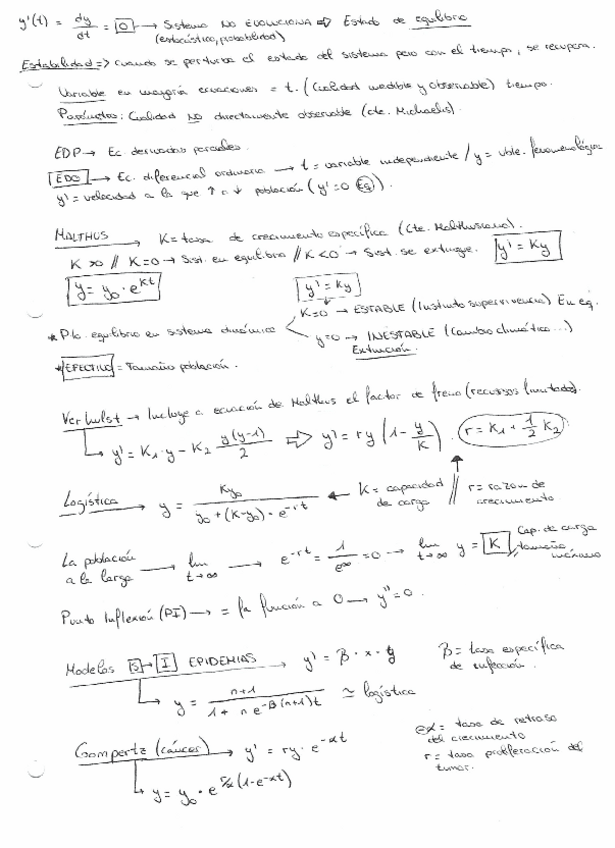 y'(t) = dy/dt = 0 → Sistema NO EVOLUCIONA ⇒ Estado de equilibrio
(estocástico, probabilidad)
Estabilidad => cuando se perturba el estado del sistema pero con el tiempo, se recupera.
Variable en mayoría ecuaciones = t. (Cualidad medible y observable) tiempo.
Parámetros: Cualidad NO directamente observable (cte. Michaelis).
EDP → Ec. derivadas parciales.
EDO → Ec. diferencial ordinaria → t = variable independiente / y = vble. fenomenológica
y' = velocidad a la que ↑ o ↓ población (y' = 0 Eq).
MALTHUS → K = tasa de crecimiento específica (Cte. Malthusiana).
K > 0 // K = 0 → Sist. en equilibrio // K < 0 → Sist. se extingue. y' = Ky
y = y₀ · e^Kt y' = Ky
K=0 → ESTABLE (Instinto supervivencia) En eq.
* Pto. equilibrio en sistema dinámico
y=0 → INESTABLE (Cambio climático...)
Extinción.
* EFECTIVO = Tamaño población.
Verhulst → Incluye a ecuación de Malthus el factor de freno (recursos limitados).
y' = K₁ · y - K₂ y(y-1)/2 ⇒ y' = ry (1 - y/K). r = K₁ + 1/2 K₂
Logística → y = Ky₀ / y₀ + (K-y₀) · e^-rt ← K = capacidad de carga // r = razón de crecimiento
La población a la larga → lim t→∞ → e^-rt = 1/e^∞ = 0 → lim t→∞ y = K Cap. de carga, tamaño máximo
Punto Inflexión (PI) → = la función a 0 → y'' = 0.
Modelos S → I EPIDEMIAS → y' = β · x · y β = tasa específica de infección.
y = n+1 / 1 + n e^-β(n+1)t ≃ logística
Gompertz (cáncer) → y' = ry · e^-αt
α = tasa de retraso del crecimiento
r = tasa proliferación del tumor.
y = y₀ · e^r/α (1-e^-αt)